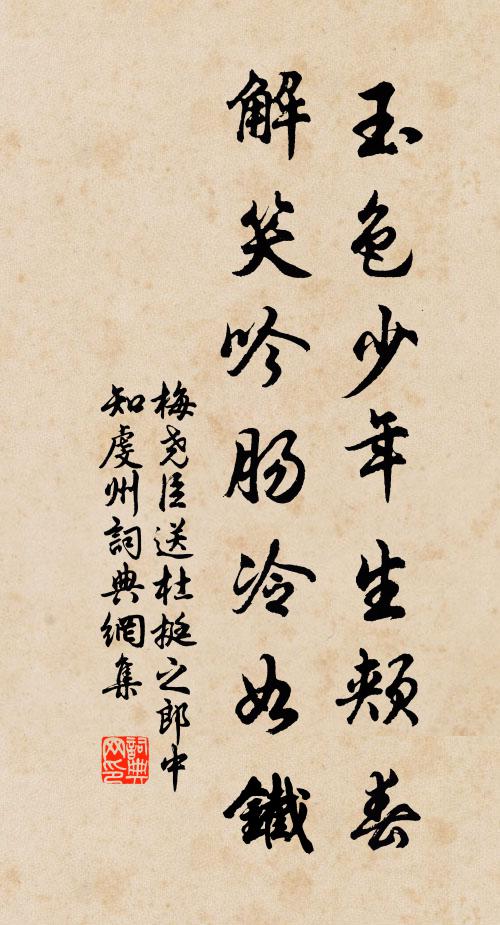 玉色少年生頰春
解笑吟肠冷如鐵
梅尧臣送杜挺之郎中
知虔州詞典網集
詞典网印